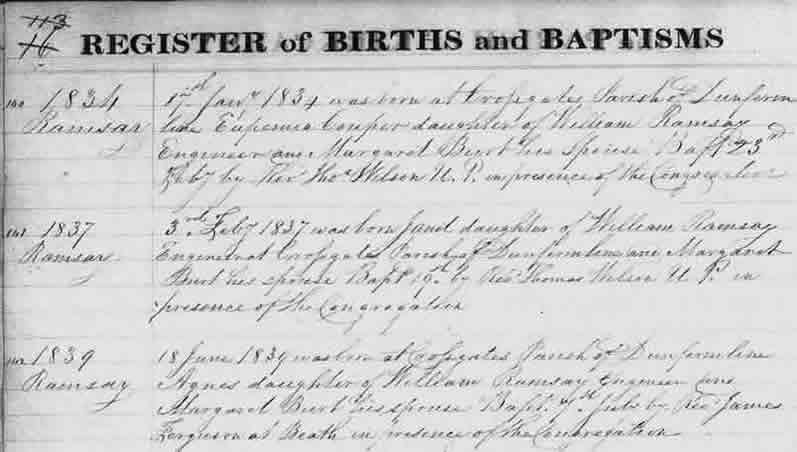 113
16
REGISTER of BIRTHS and BAPTISMS
1834 Ramsay
Janr 1834 was born at Crossgates Parish of Dunferm
line Eupemia Couper daughter of William Ramsay
Engineer and Margaret Burt his spouse Bapt 23rd
Feby by Rev Thos Wilson U. P. in presence of the Congregation
1837 Ramsay
3rd Feby 1837 was born Janet daughter of William Ramsay
Engineer at Crossgates Parish of Dunfermline and Margaret
Burt his spouse Bapt 19th by Revd Thomas Wilson U P. in
presence of the Congregation
1839 Ramsay
18 June 1839 was born at Crossgates Parish of Dunfermline
Agnes daughter of William Ramsay Engineer and
Margaret Burt his spouse Bapt. 7th July by Revd James
Ferguson at Beath in presence of the Congregation